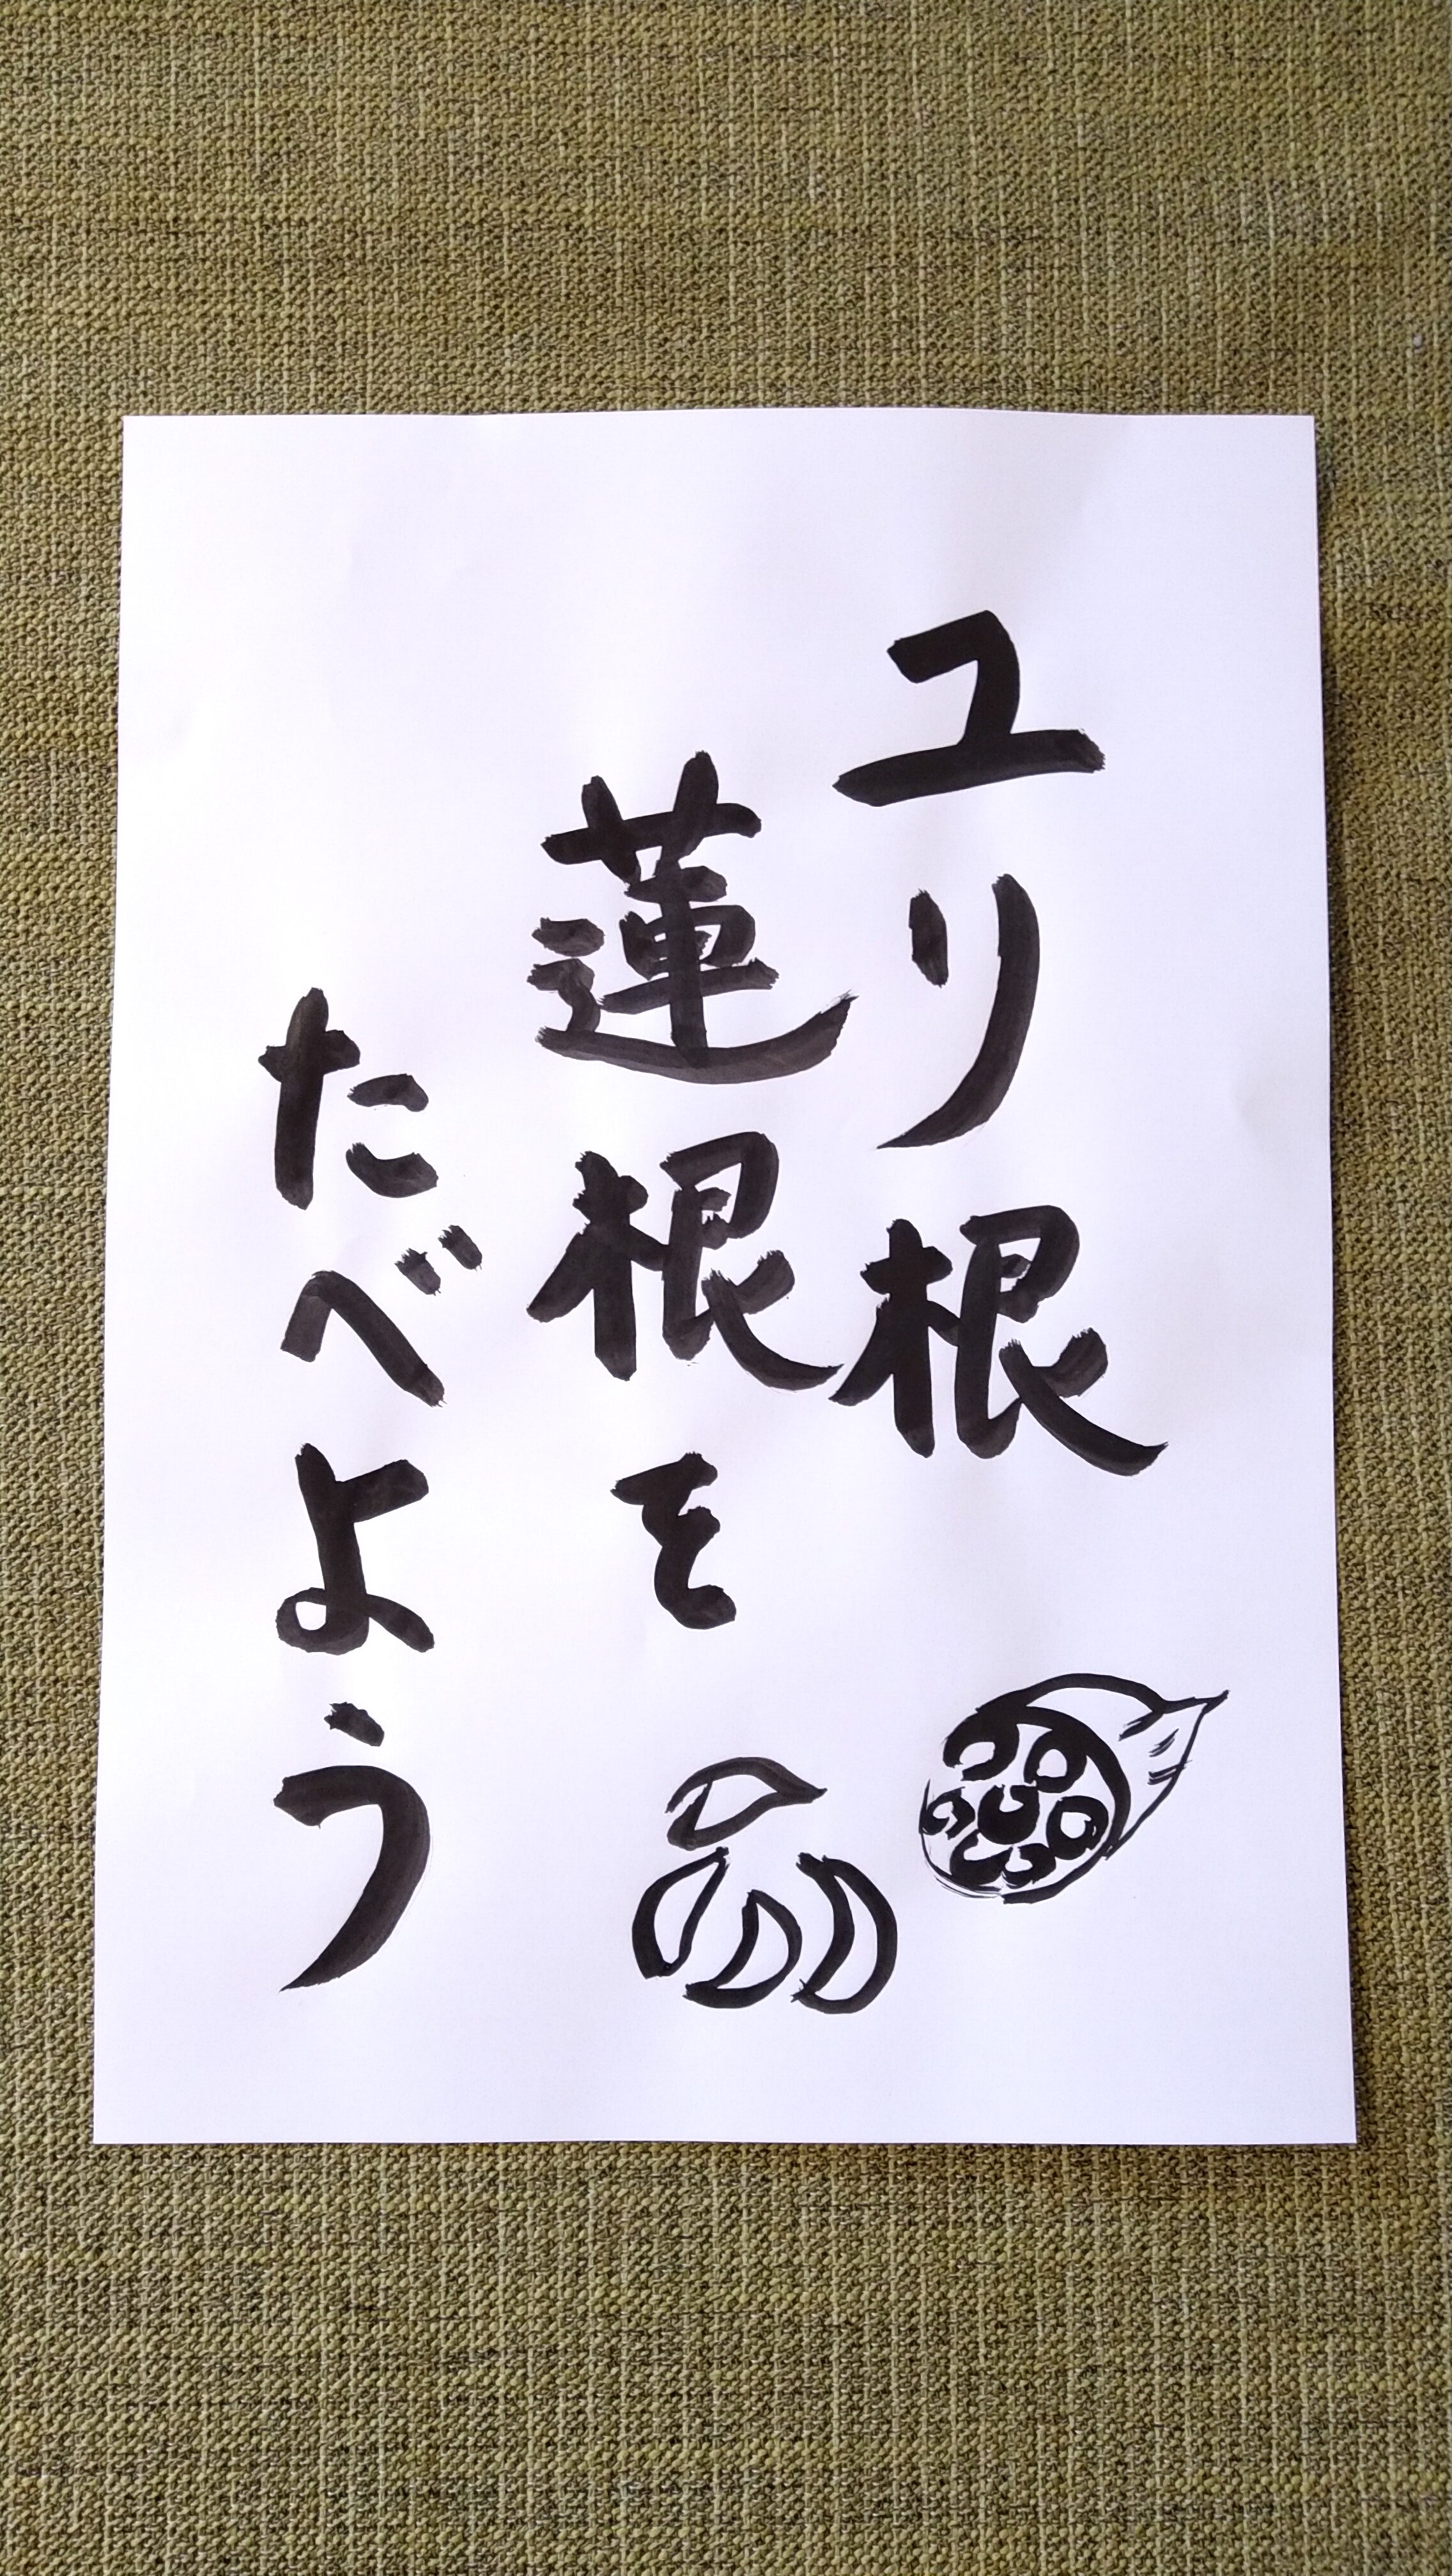 ユリ根
蓮根を
たべよう